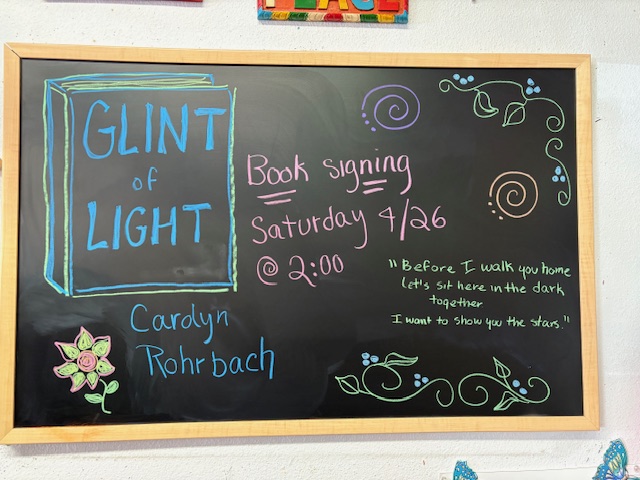 PEACE
GLINT
of
LIGHT
Book signing
Saturday 4/26
@ 2:00
"Before I walk you home
let's sit here in the dark
together
I want to show you the stars."
Carolyn
Rohrbach